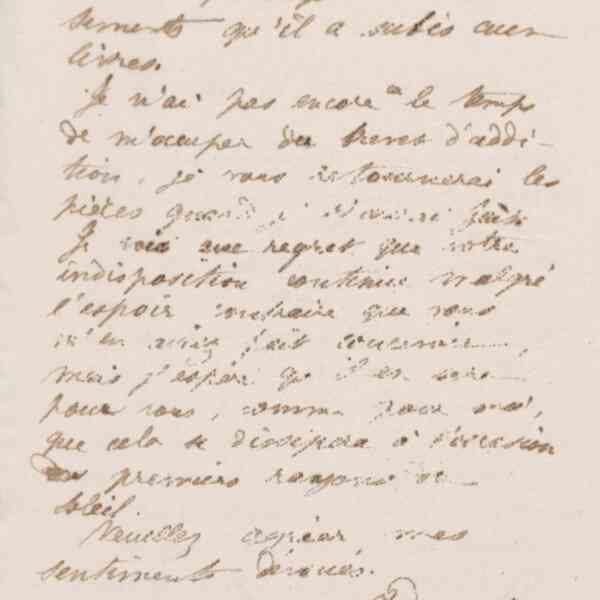 sements qu'il a subis aux
livres.
Je n'ai pas encore eu le temps
de m'occuper du brevet d'addi-
tion, je vous retournerai les
pièces quand je
Je vois avec regret que votre
indisposition continue malgré
l'espoir contraire que vous
m'en aviez fait concevoir,
mais j'espère qu'il en sera
pour vous, comme pour moi,
que cela se dissipera à l'occasion
des premiers rayons de
soleil.
Veuillez agréer mes
sentiments dévoués.